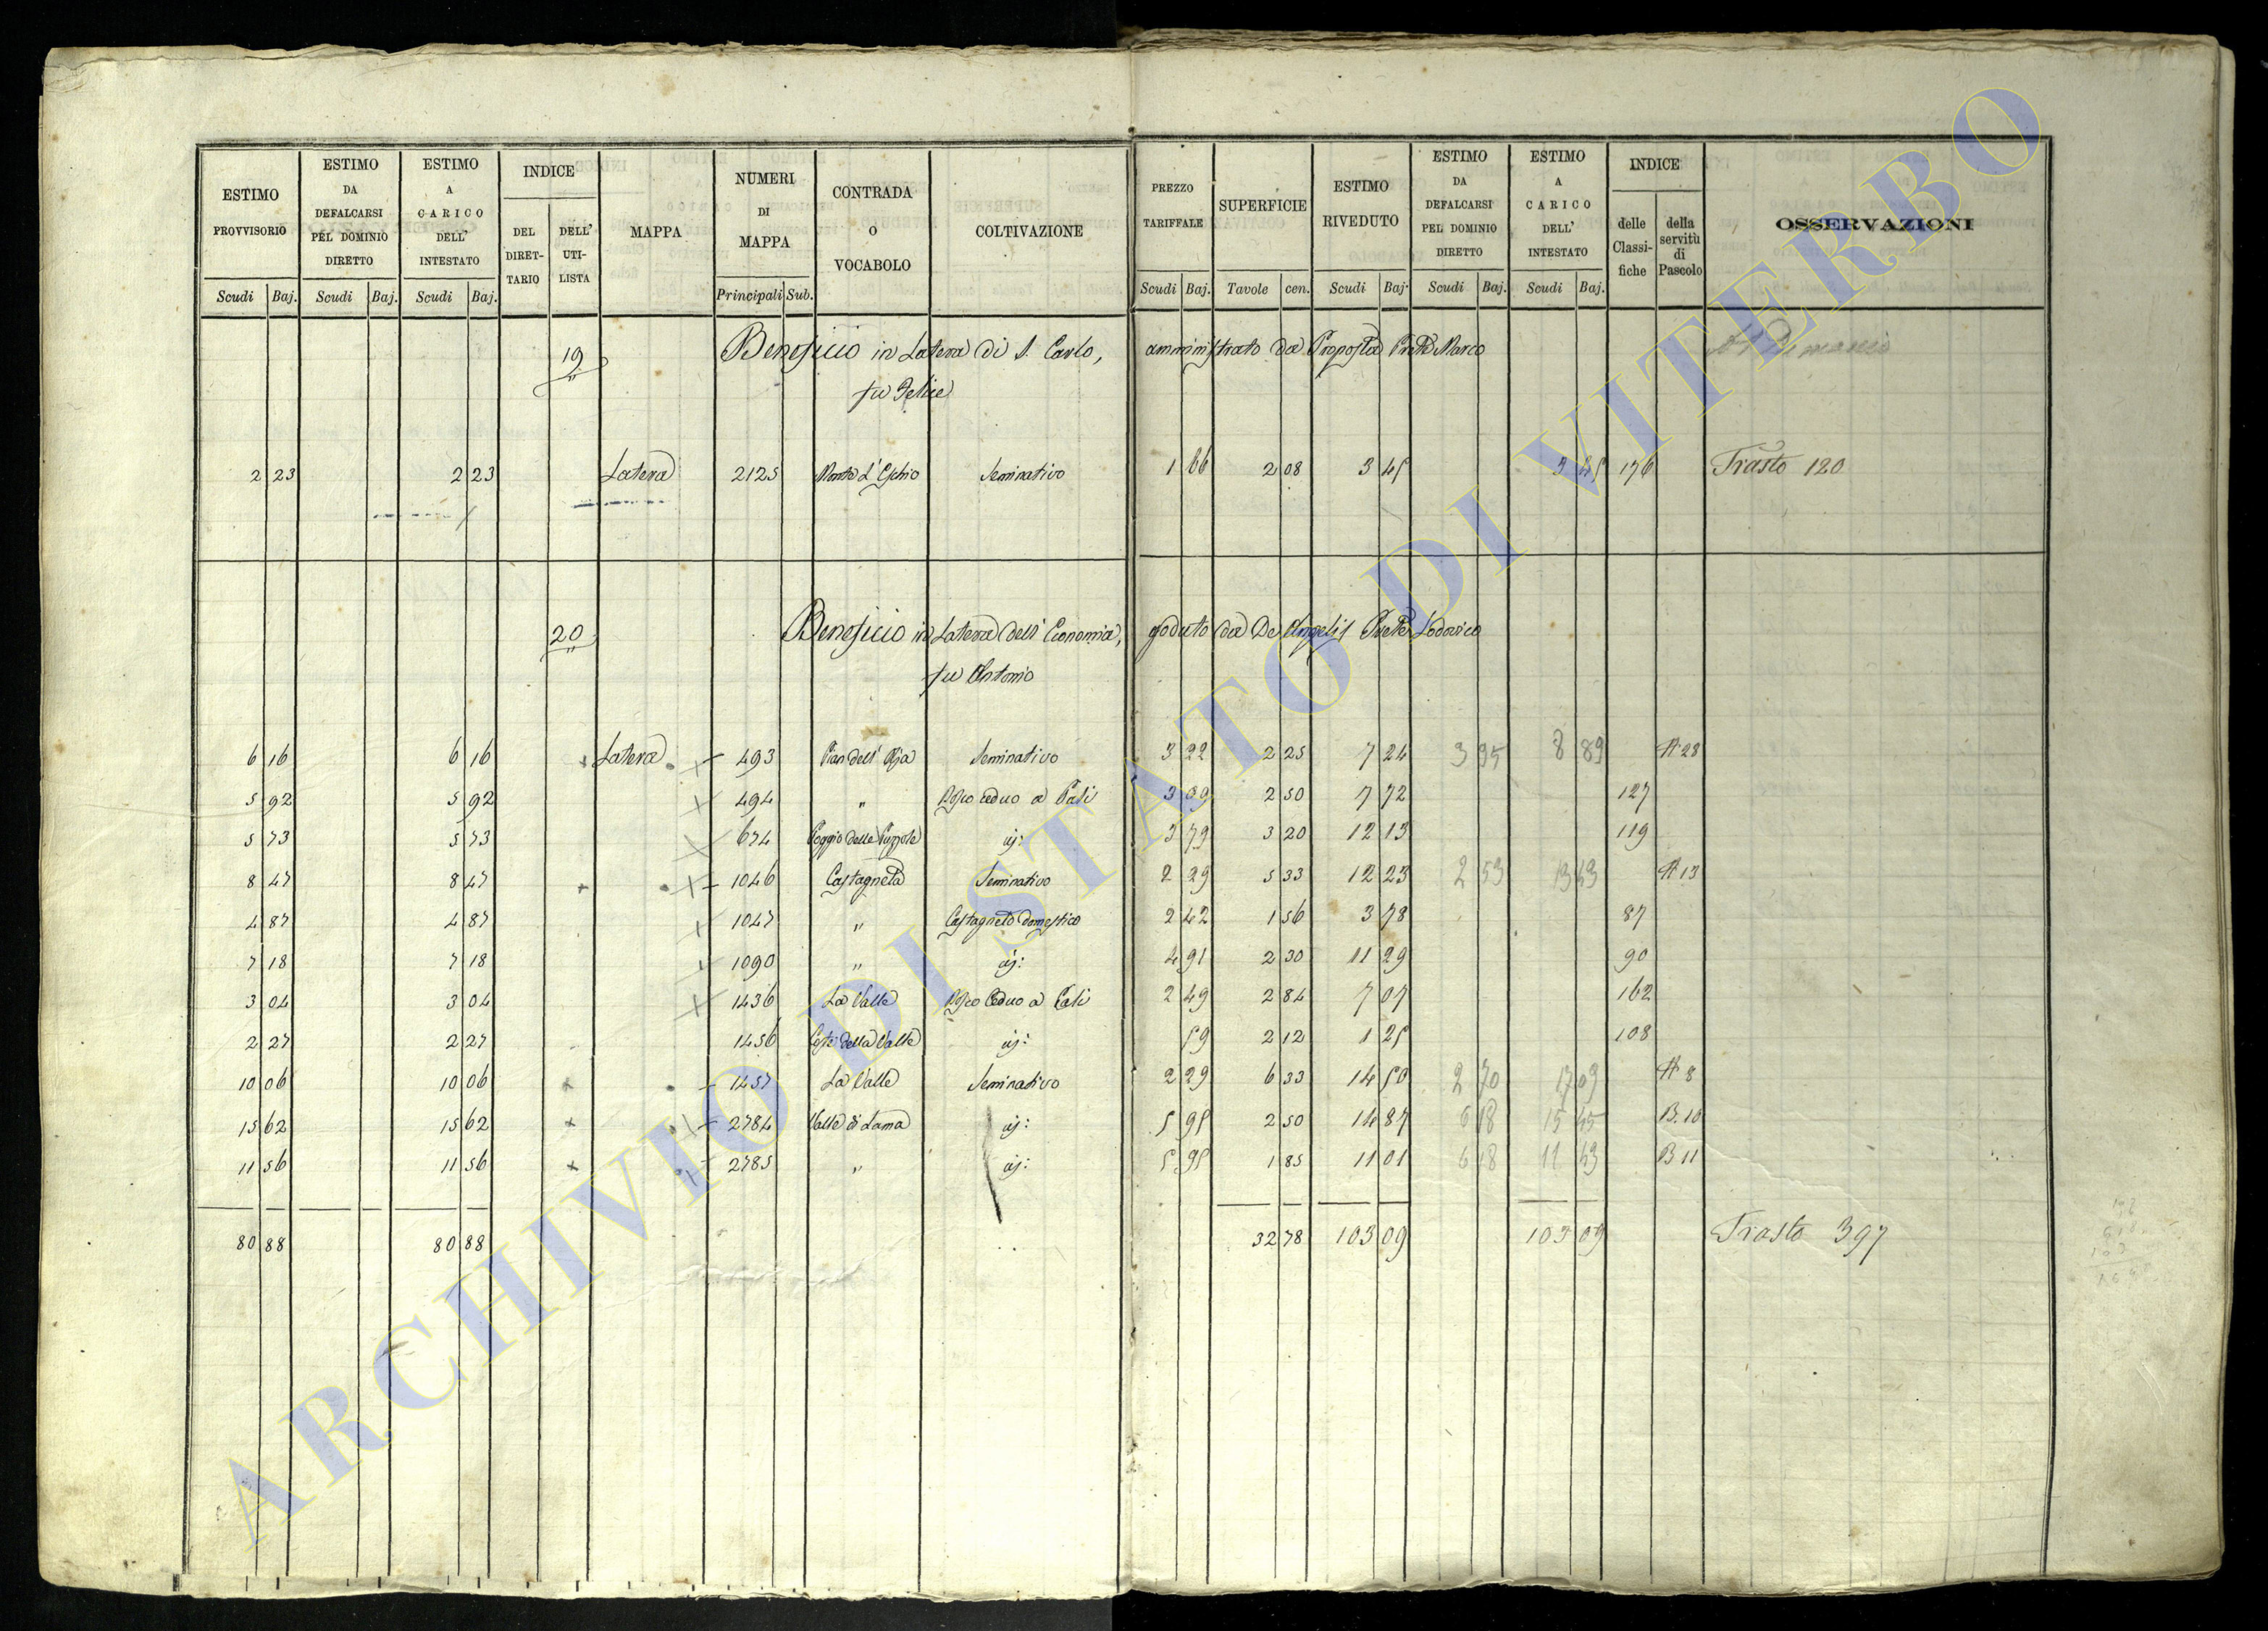 ESTIMO PROVVISORIO Scudi Baj.
ESTIMO DA DEFALCARSI PEL DOMINIO DIRETTO Scudi Baj.
ESTIMO A CARICO DELL' INTESTATO Scudi Baj.
INDICE DEL DIRET-TARIO DELL' UTI-LISTA
MAPPA
NUMERI DI MAPPA Principali Sub.
CONTRADA O VOCABOLO
COLTIVAZIONE
PREZZO TARIFFALE Scudi Baj.
SUPERFICIE Tavole cen.
ESTIMO RIVEDUTO Scudi Baj.
ESTIMO DA DEFALCARSI PEL DOMINIO DIRETTO Scudi Baj.
ESTIMO A CARICO DELL' INTESTATO Scudi Baj.
INDICE delle Classi-fiche della servitù di Pascolo
OSSERVAZIONI
19 Beneficio in Latera di S. Carlo, amministrato da Proposta Prete Marco
fu Felice
2 23 2 23 Latera 2125 Seminativo 1 66 2 08 3 45 3 45 176 Trasto 120
20 Beneficio in Latera dell' Economia, goduto da De Angelis Prete Lodovico
fu Antonio
6 16 6 16 Latera 493 Pian dell' Aja Seminativo 3 22 2 25 7 24 3 95 8 89 A 28
5 92 5 92 494 " Bosco ceduo a Pali 3 09 2 50 7 72 127
5 73 5 73 674 Poggio delle Puzzole id: 3 79 3 20 12 13 119
8 47 8 47 1046 Castagneta Seminativo 2 29 5 33 12 23 2 53 13 43 A 13
4 87 4 87 1047 " Castagneto domestico 2 42 1 56 3 78 87
7 18 7 18 1090 " id: 4 91 2 30 11 29 90
3 04 3 04 1436 La Valle Bosco Ceduo a Pali 2 49 2 84 7 07 162
2 27 2 27 1456 Coste della Valle id: 59 2 12 1 25 108
10 06 10 06 1457 La Valle Seminativo 2 29 6 33 14 50 2 70 17 09 A 8
15 62 15 62 2784 Valle di Lama id: 5 95 2 50 14 87 6 18 15 45 B. 10
11 56 11 56 2785 " id: 5 95 1 85 11 01 6 18 11 43 B 11
80 88 80 88 32 78 103 09 103 09 Trasto 397
ARCHIVIO DI STATO DI VITERBO